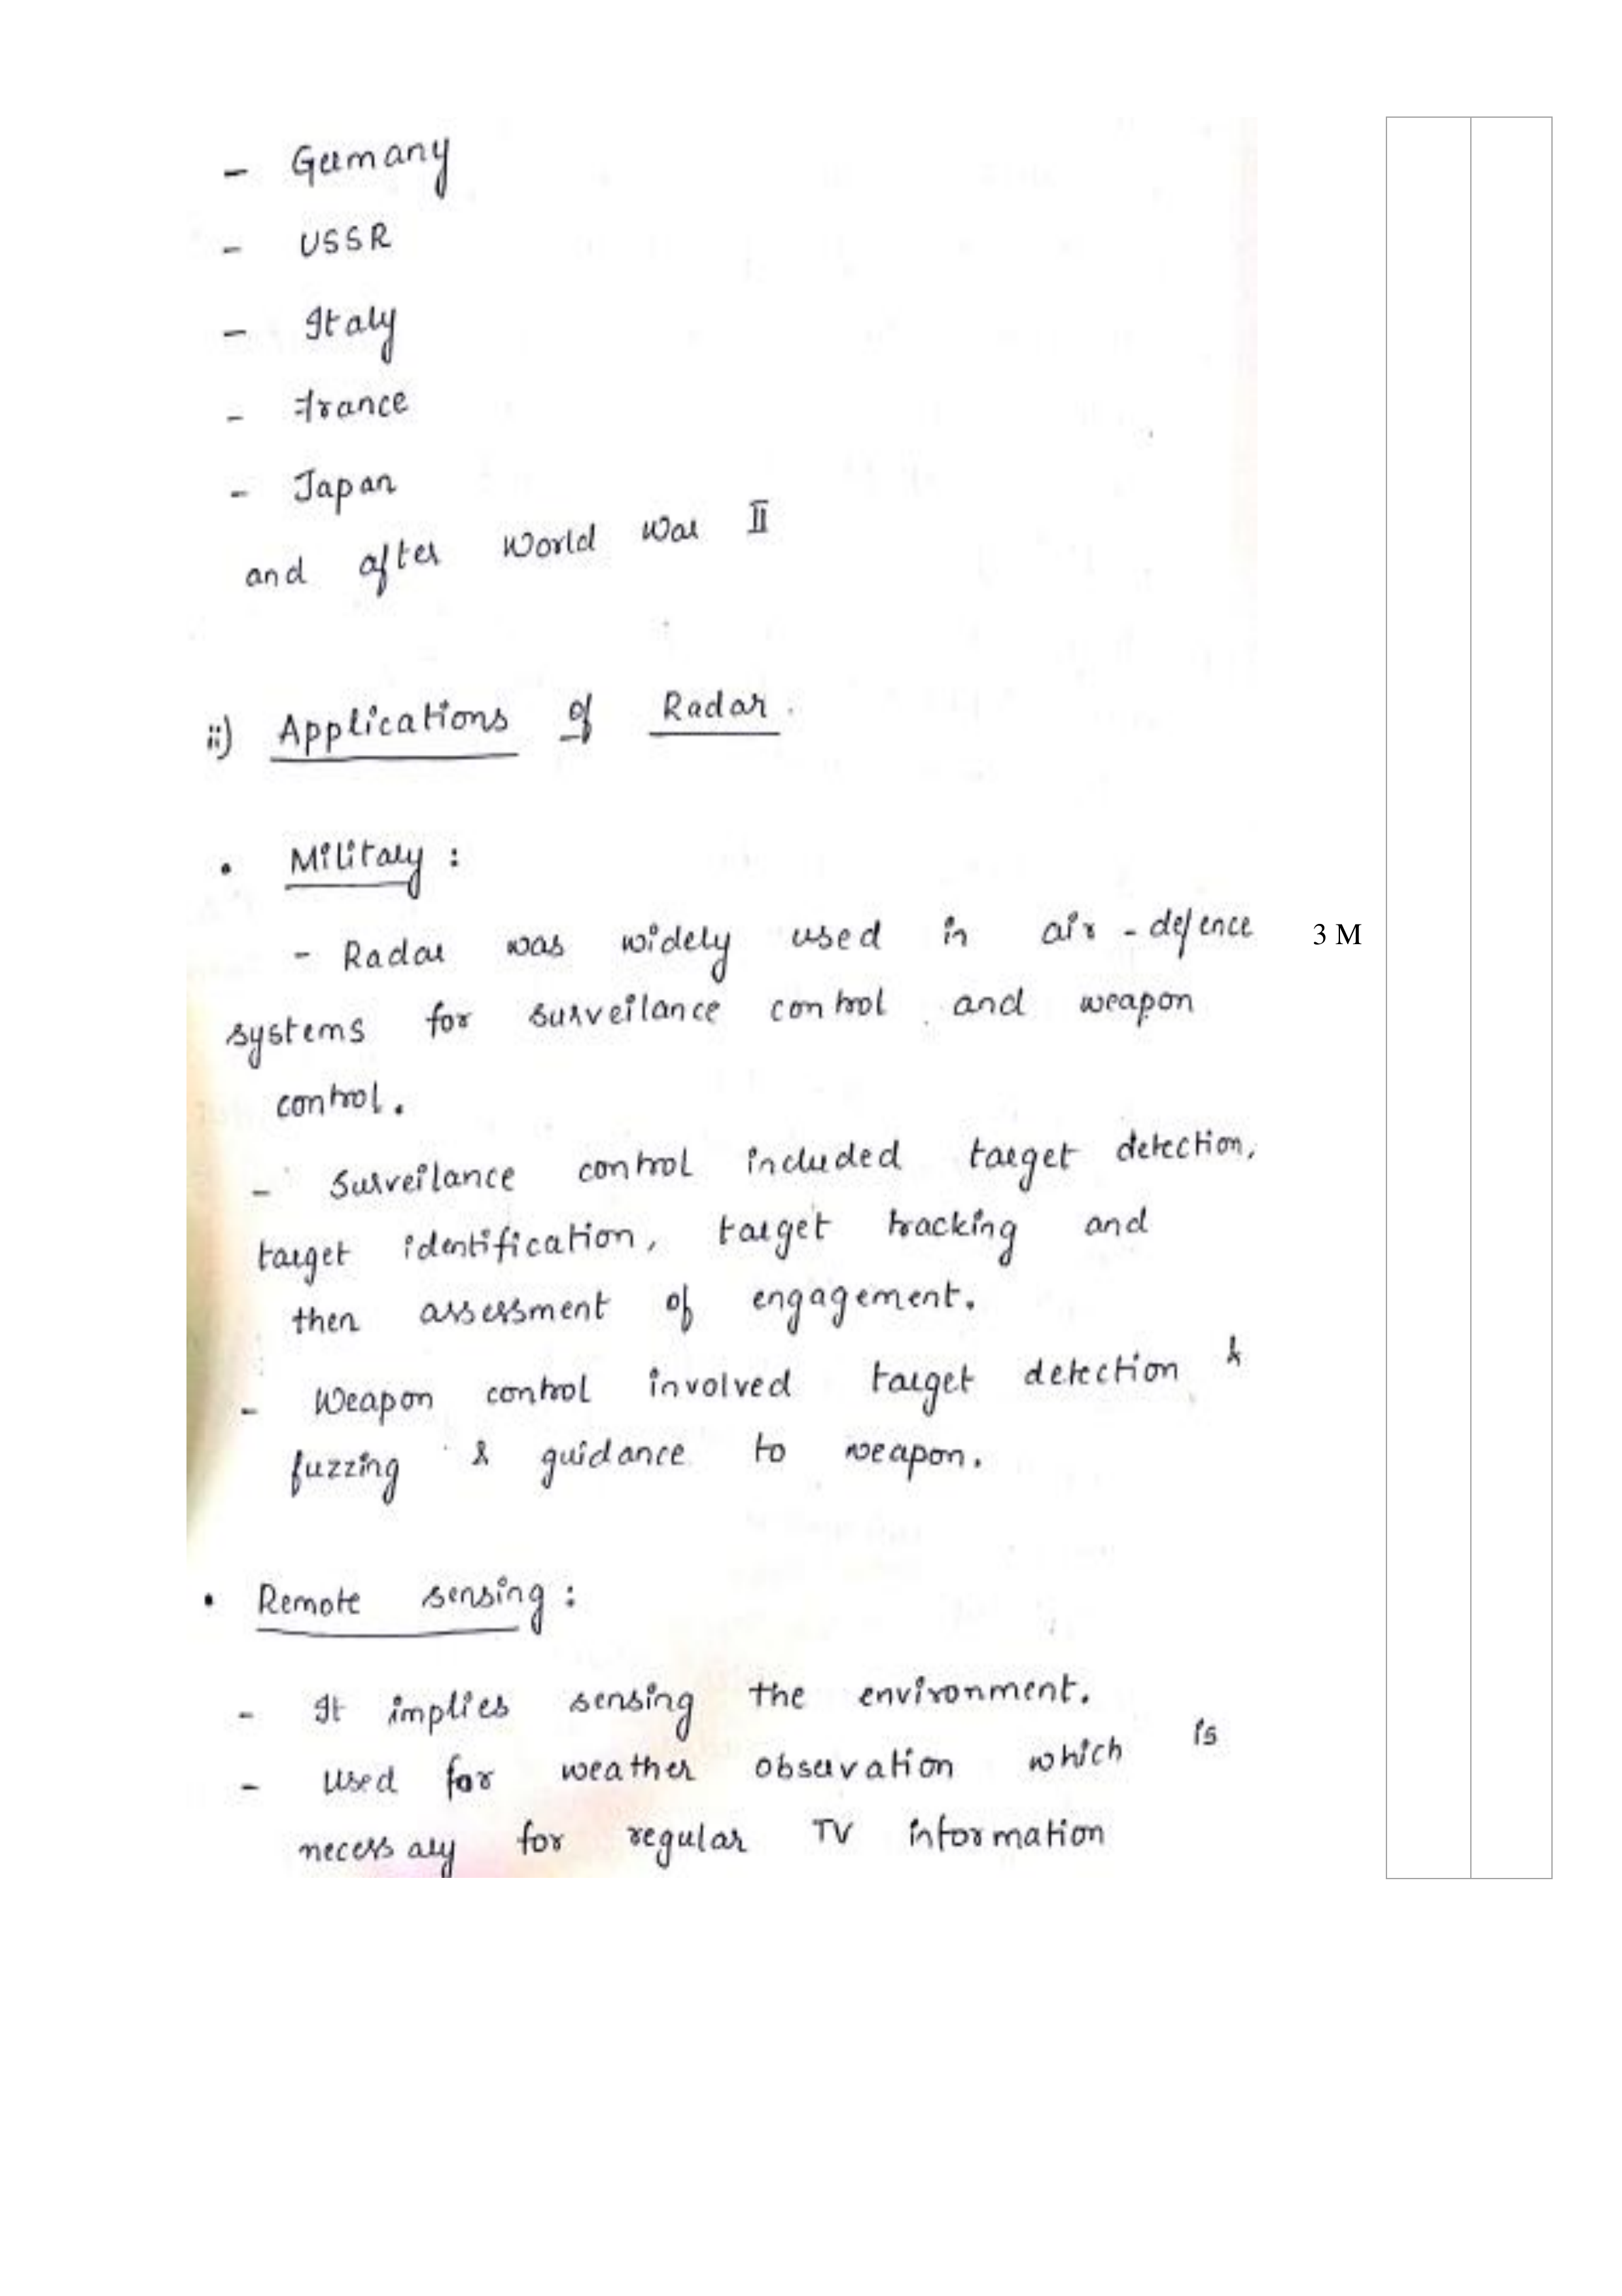 - Germany
- USSR
- Italy
- France
- Japan
and after World War II
ii) Applications of Radar.
• Military :
- Radar was widely used in air-defence
3 M
systems for surveilance control and weapon
control.
- Surveilance control included target detection,
target identification, target tracking and
then assessment of engagement.
- Weapon control involved target detection &
fuzzing & guidance to weapon.
• Remote sensing :
- It implies sensing the environment.
- Used for weather observation which is
necessary for regular TV information